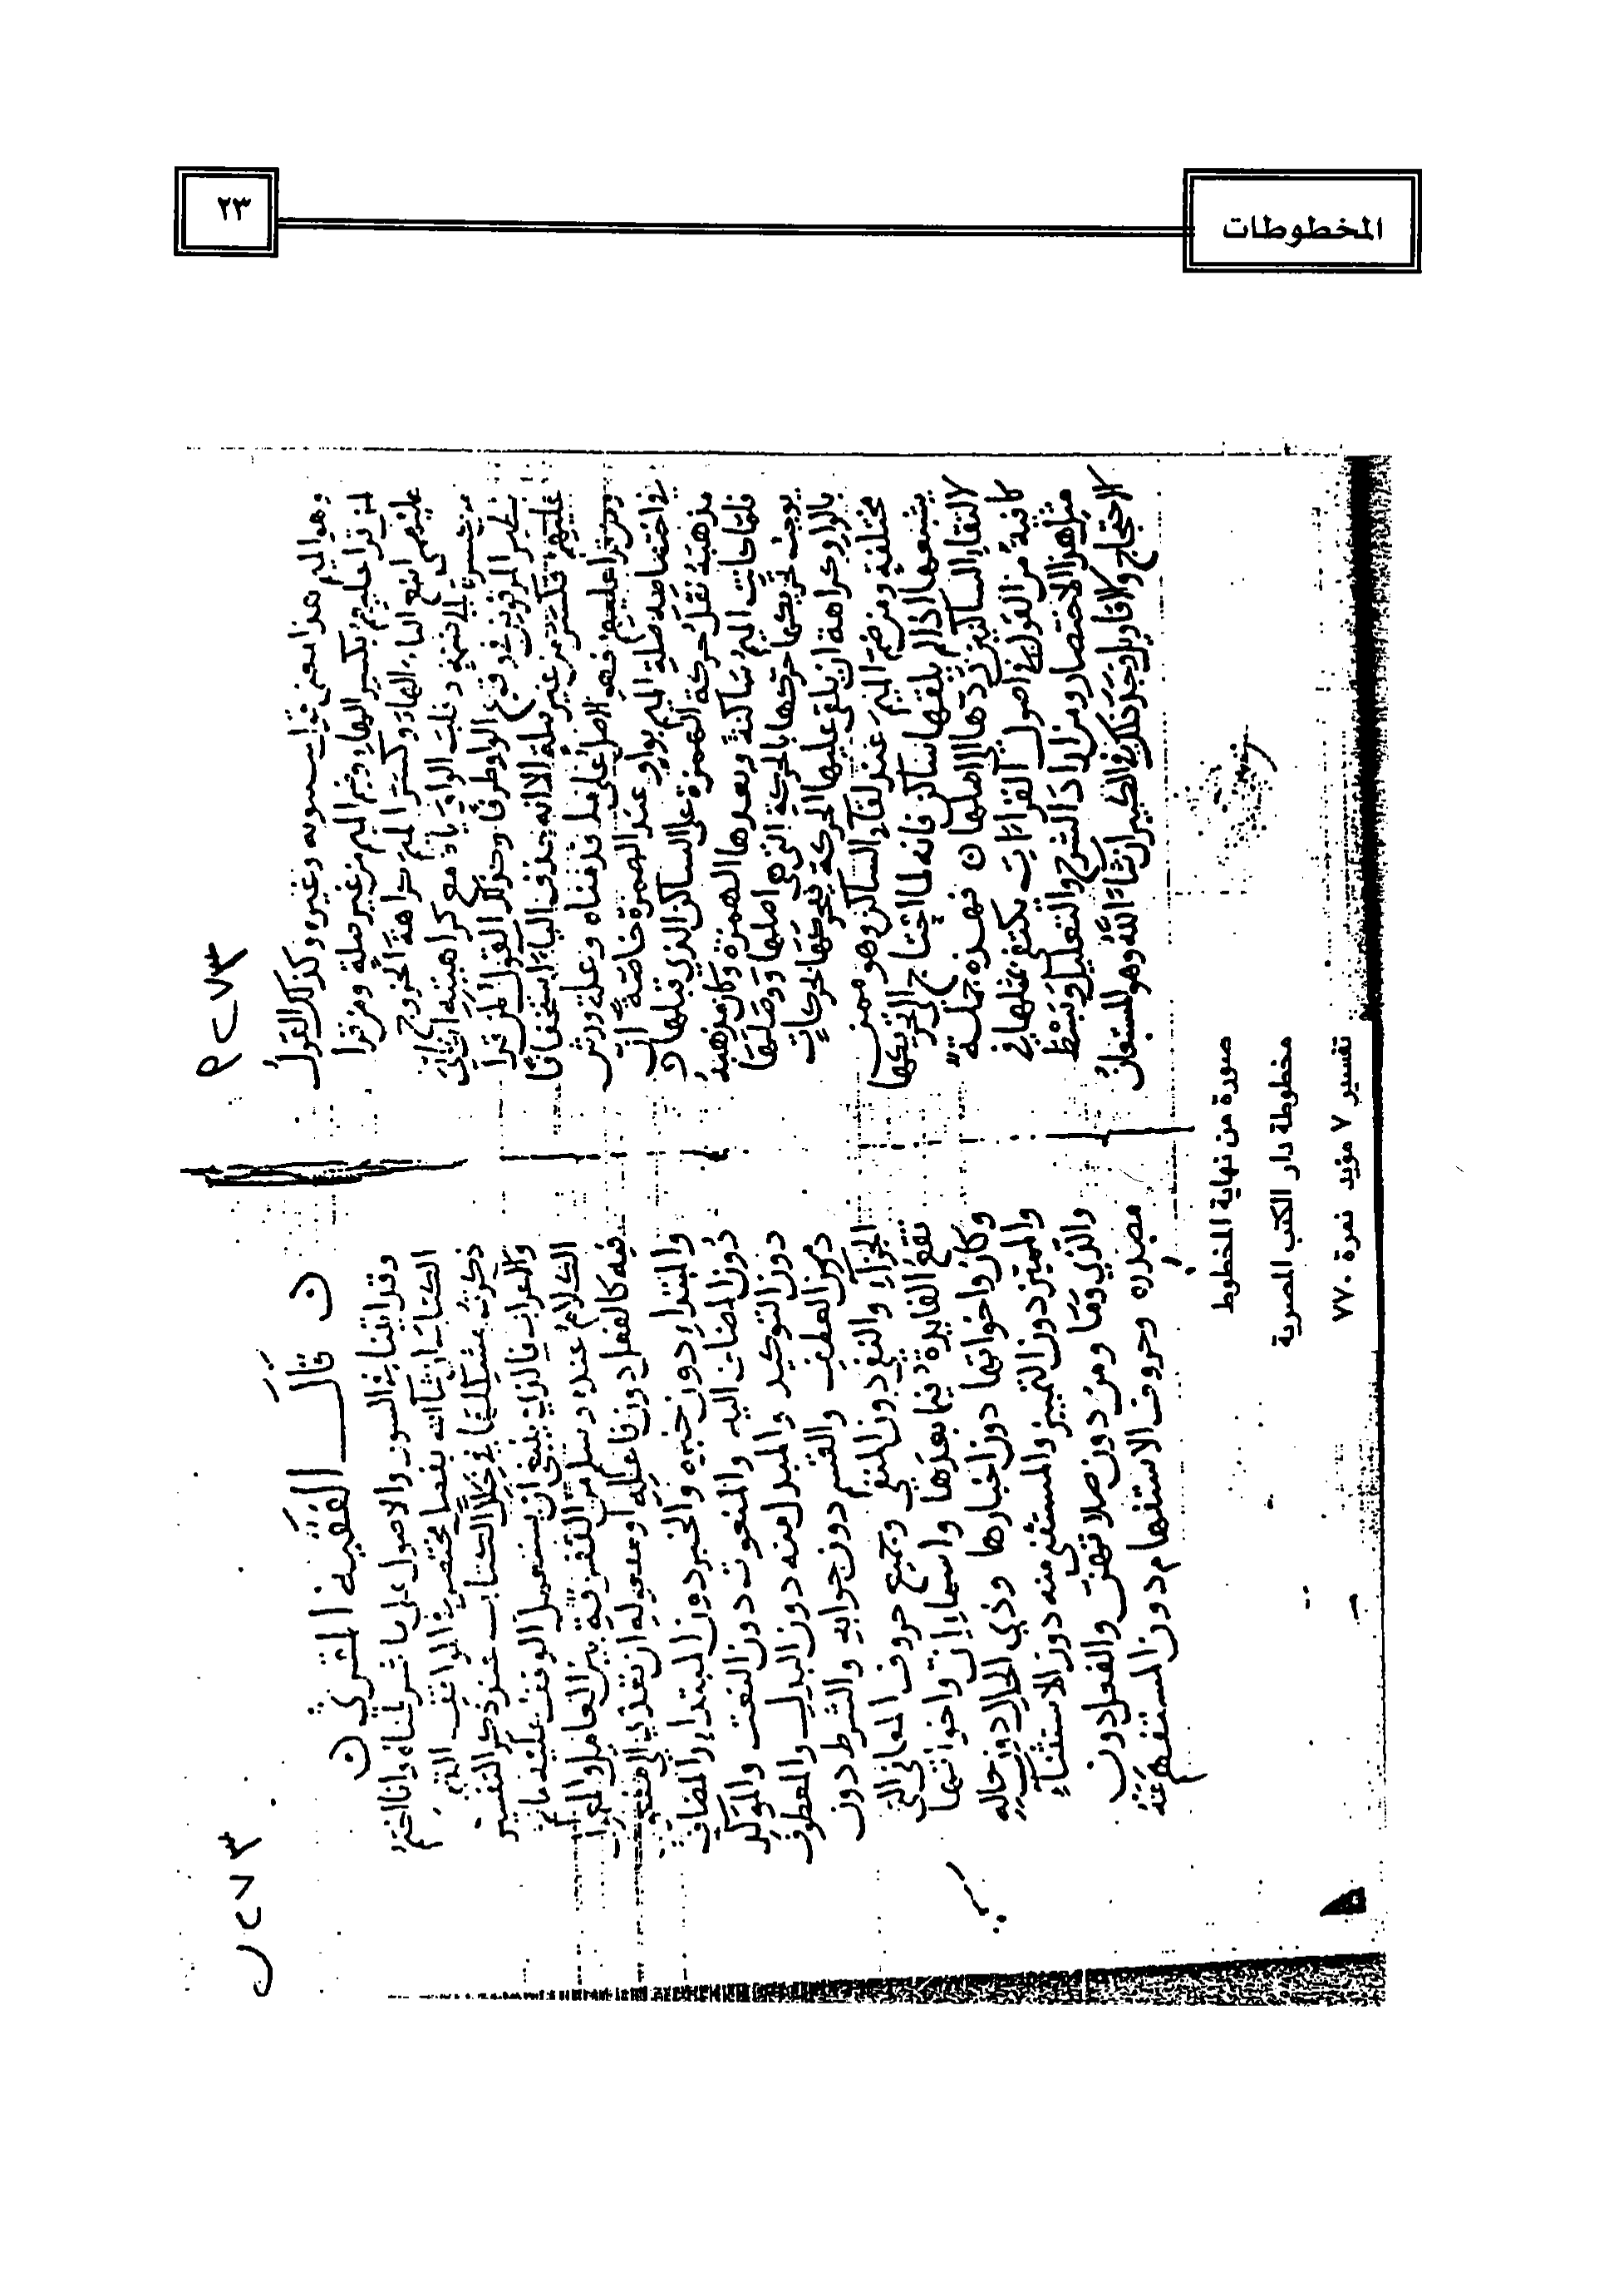 المخطوطات
٢٣
٢٧٣
وهو الميم هذا معنى قول سيبويه وغيره وكذلك القول
لمن قرا عليهم بكسر الهاء وضم الميم من غير صلة ومن قرا
عليهم اتبع الياء الهاء وكسر الميم كراهة الخروج
من كسرة الى ضمة وقلبت الواو ياء مع كراهيته ان ياتي
بنظير المرفوض وقوع الواو طرفا وكذلك القول لمن قرا
عليهم فكسر من غير صلة الا انه حذف الياء استخفافا
ومن قرا عليهم فهو الاصل على ما قدمناه وعلة ورش
في اختصاصه صلة الميم بواو عند الهمزة خاصة ان
مذهبه نقل حركة الهمزة على الساكن الذي قبلها
فلما كانت الميم ساكنة وبعدها الهمزة وكان مذهبه
يوجب تحريكها حركها بالحركة التي هي اصلها ووصلها
بالواو كراهة ان يلقي عليها الحركة فيحركها
مختلفة ومن ضم الميم عند لقاء الساكن وهو ممن
يشبعها اذا لم يلقها ساكن فانه لما احتاج الى تحريكها
لالتقاء الساكنين ردها الى اصلها ن فهذه جملة
كافية من القول في اصول القراات يكتفى بمثلها في
مثل هذا الاختصار ومن اراد الشرح والتعليل وبسط
الاحتجاج والاقاويل ذلك في الكبير ان شا الله وهو المستعان
٢٧٣
ن قال الفقيه المقرئ ن
وقد اتينا في السور والاصول على ما شرطناه وانا اختم
الكتاب ان شا الله بفصل مختصر في الوقف الذي
ذكرت مشكله في خلال الكتاب عند ذكر التفسير
والاعراب فالذي ينبغي ان يستعمل الوقف عليه ما تم
الكلام عنده وسلم من التفرقة بين العامل والمعمول
فيه كالفعل دون فاعله او مفعوله ان تعدى الى مفعول
والمبتدا دون خبره والخبر دون المبتدا والمضاف
دون المضاف اليه والمنعوت دون النعت والموكد
دون التوكيد والمبدل منه دون البدل والمعطوف
دون العطف والقسم دون جوابه والشرط دون
الجزاء والنفي دون المنفي وجميع حروف المعاني التي
تقع الفايدة فيما بعدها واسما ان واخواتها
وكان واخواتها دون اخبارها وذي الحال دون حاله
والمميز دون التمييز والمستثنى منه دون الاستثناء
والذي وما ومن دون صلاتهن والفعل دون
مصدره وحروف الاستفهام دون المستفهم عنه
صورة من نهاية المخطوط
مخطوطة دار الكتب المصرية
تفسير ٧ مؤيد نمرة ٧٧٠